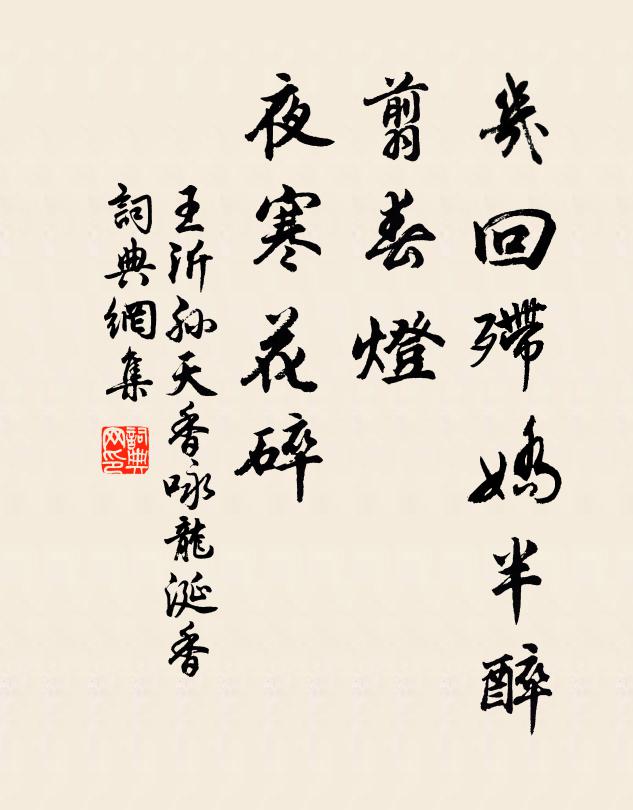 幾回殢嬌半醉
翦春燈
夜寒花碎
王沂孫天香咏龍涎香
詞典網集
詞典网印